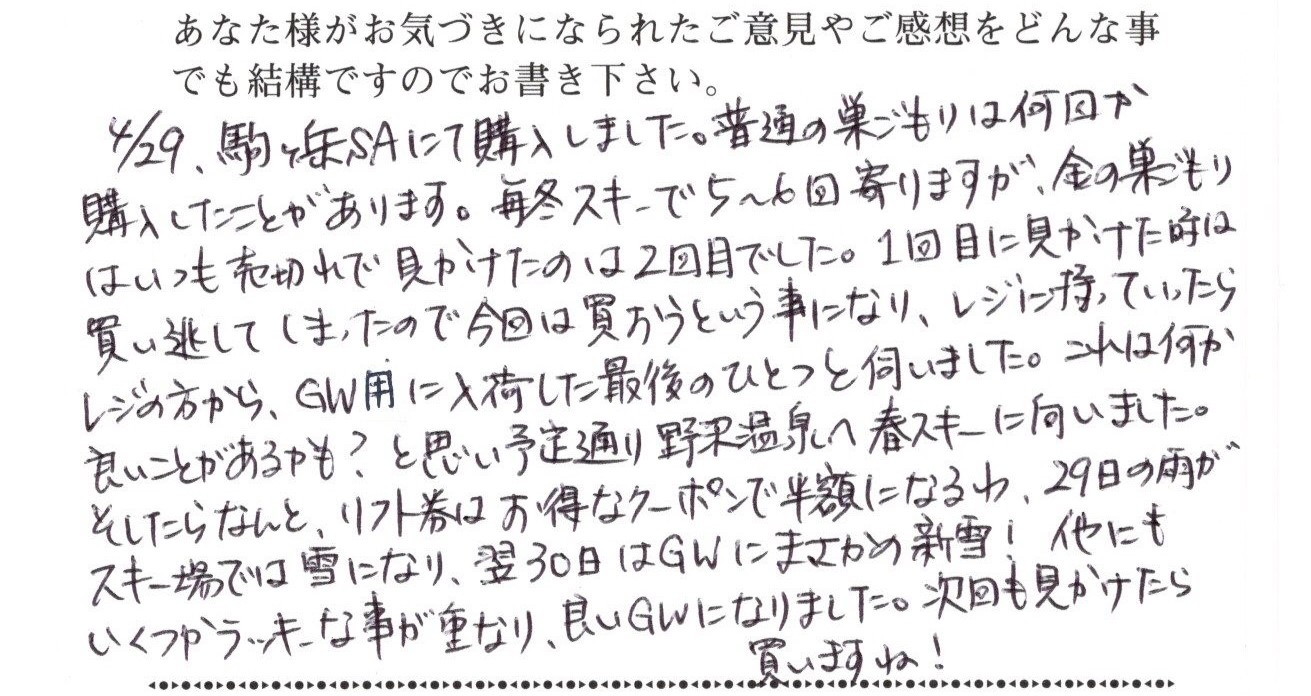 あなた様がお気づきになられたご意見やご感想をどんな事
でも結構ですのでお書き下さい。
4/29、駒ヶ岳SAにて購入しました。普通の巣ごもりは何回か
購入したことがあります。毎冬スキーで5〜6回寄りますが、金の巣ごもり
はいつも売切れで見かけたのは2回目でした。1回目に見かけた時は
買い逃してしまったので今回は買おうという事になり、レジに持っていったら
レジの方から、GW用に入荷した最後のひとつと伺いました。これは何か
良いことがあるかも?と思い予定通り野沢温泉へ春スキーに向いました。
そしたらなんと、リフト券はお得なクーポンで半額になるわ、29日の雨が
スキー場では雪になり、翌30日はGWにまさかの新雪!他にも
いくつかラッキーな事が重なり、良いGWになりました。次回も見かけたら
買いますね!